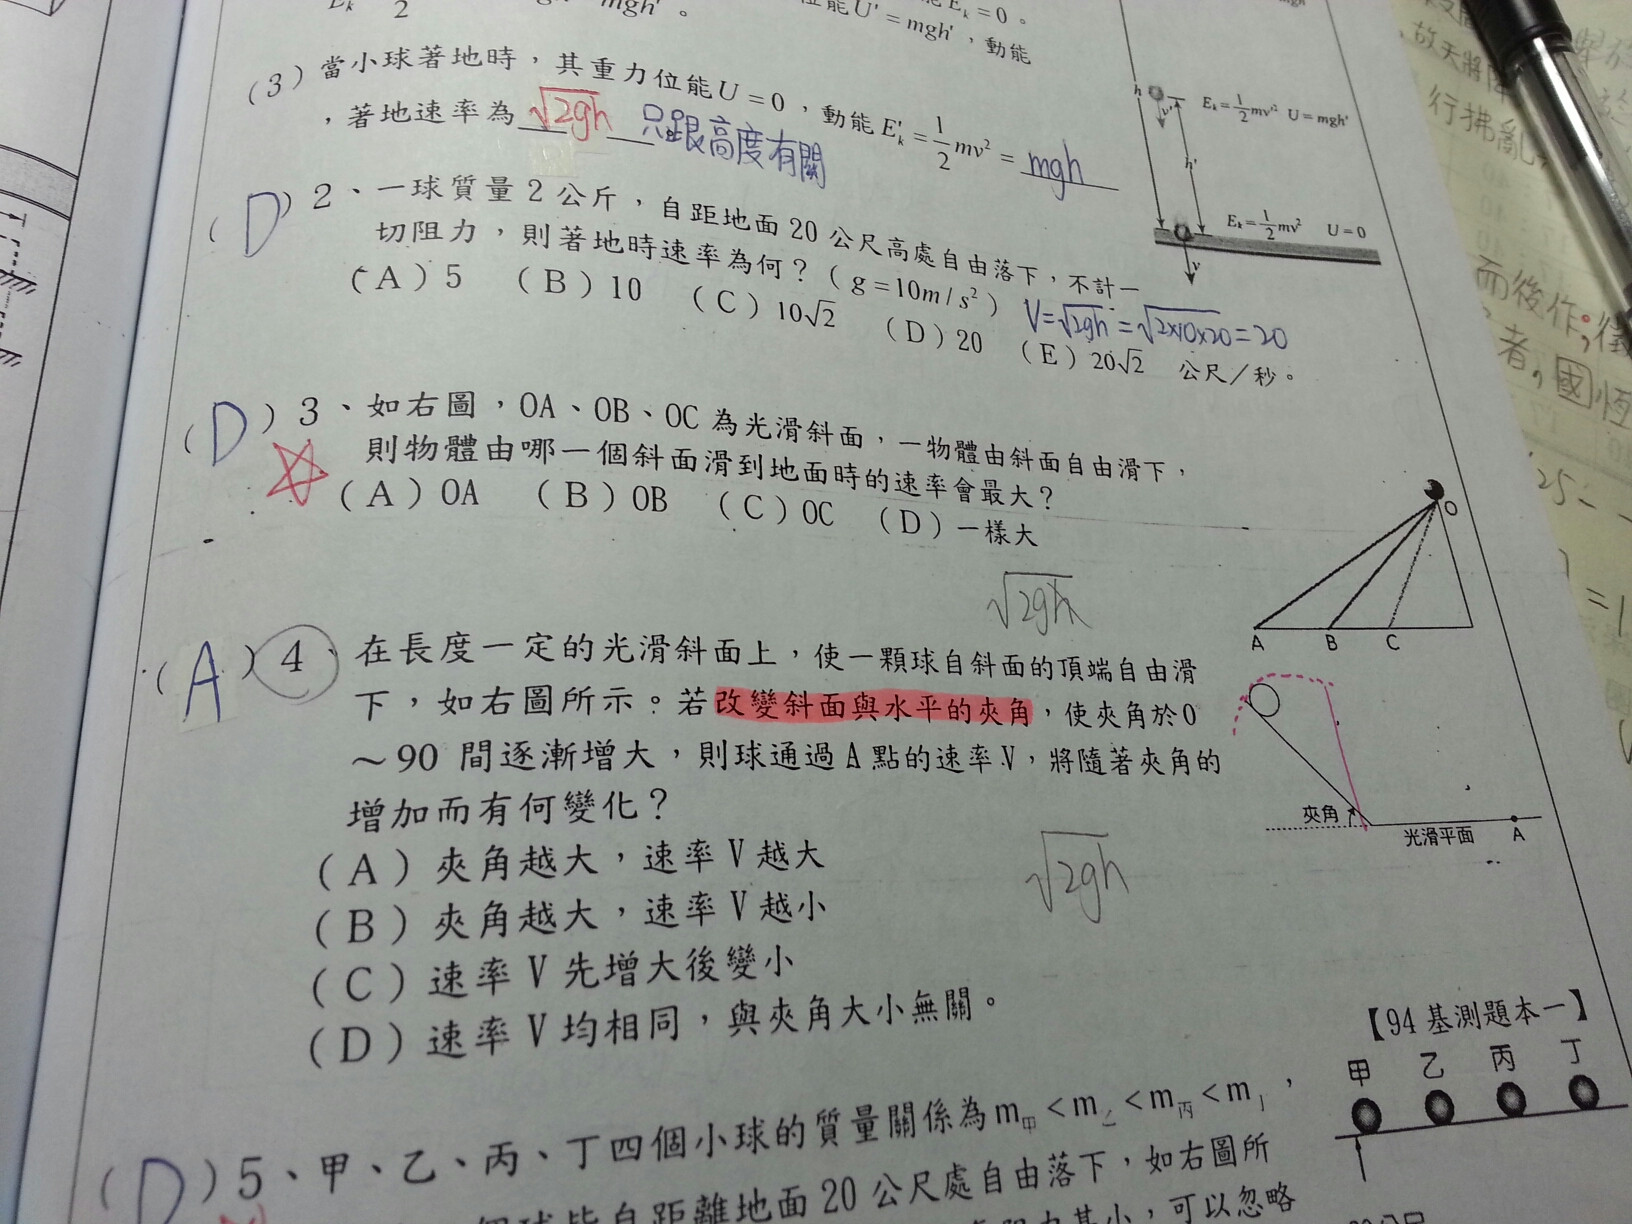 U' = mgh'，動能
(3) 當小球著地時，其重力位能U = 0，動能 E'k = 1/2 mv² = mgh
，著地速率為 √2gh 只跟高度有關
h
v'
h'
Ek = 1/2 mv'² U = mgh'
Ek = 1/2 mv² U = 0
v
( D ) 2、一球質量2公斤，自距地面20公尺高處自由落下，不計一
切阻力，則著地時速率為何？( g = 10m / s² ) V=√2gh = √2×10×20 = 20
(A) 5 (B) 10 (C) 10√2 (D) 20 (E) 20√2 公尺／秒。
( D ) 3、如右圖，OA、OB、OC 為光滑斜面，一物體由斜面自由滑下，
則物體由哪一個斜面滑到地面時的速率會最大？
(A) OA (B) OB (C) OC (D) 一樣大
√2gh
O
A B C
( A ) 4 在長度一定的光滑斜面上，使一顆球自斜面的頂端自由滑
下，如右圖所示。若改變斜面與水平的夾角，使夾角於0
～90 間逐漸增大，則球通過A點的速率V，將隨著夾角的
增加而有何變化？
(A) 夾角越大，速率V越大
(B) 夾角越大，速率V越小
(C) 速率V先增大後變小
(D) 速率V均相同，與夾角大小無關。
√2gh
夾角
光滑平面
A
【94基測題本一】
( D ) 5、甲、乙、丙、丁四個小球的質量關係為m甲 < m乙 < m丙 < m丁，
自距離地面20公尺處自由落下，如右圖所
可以忽略
甲 乙 丙 丁
而後作；徵
者，國恆
故天將降
行拂亂